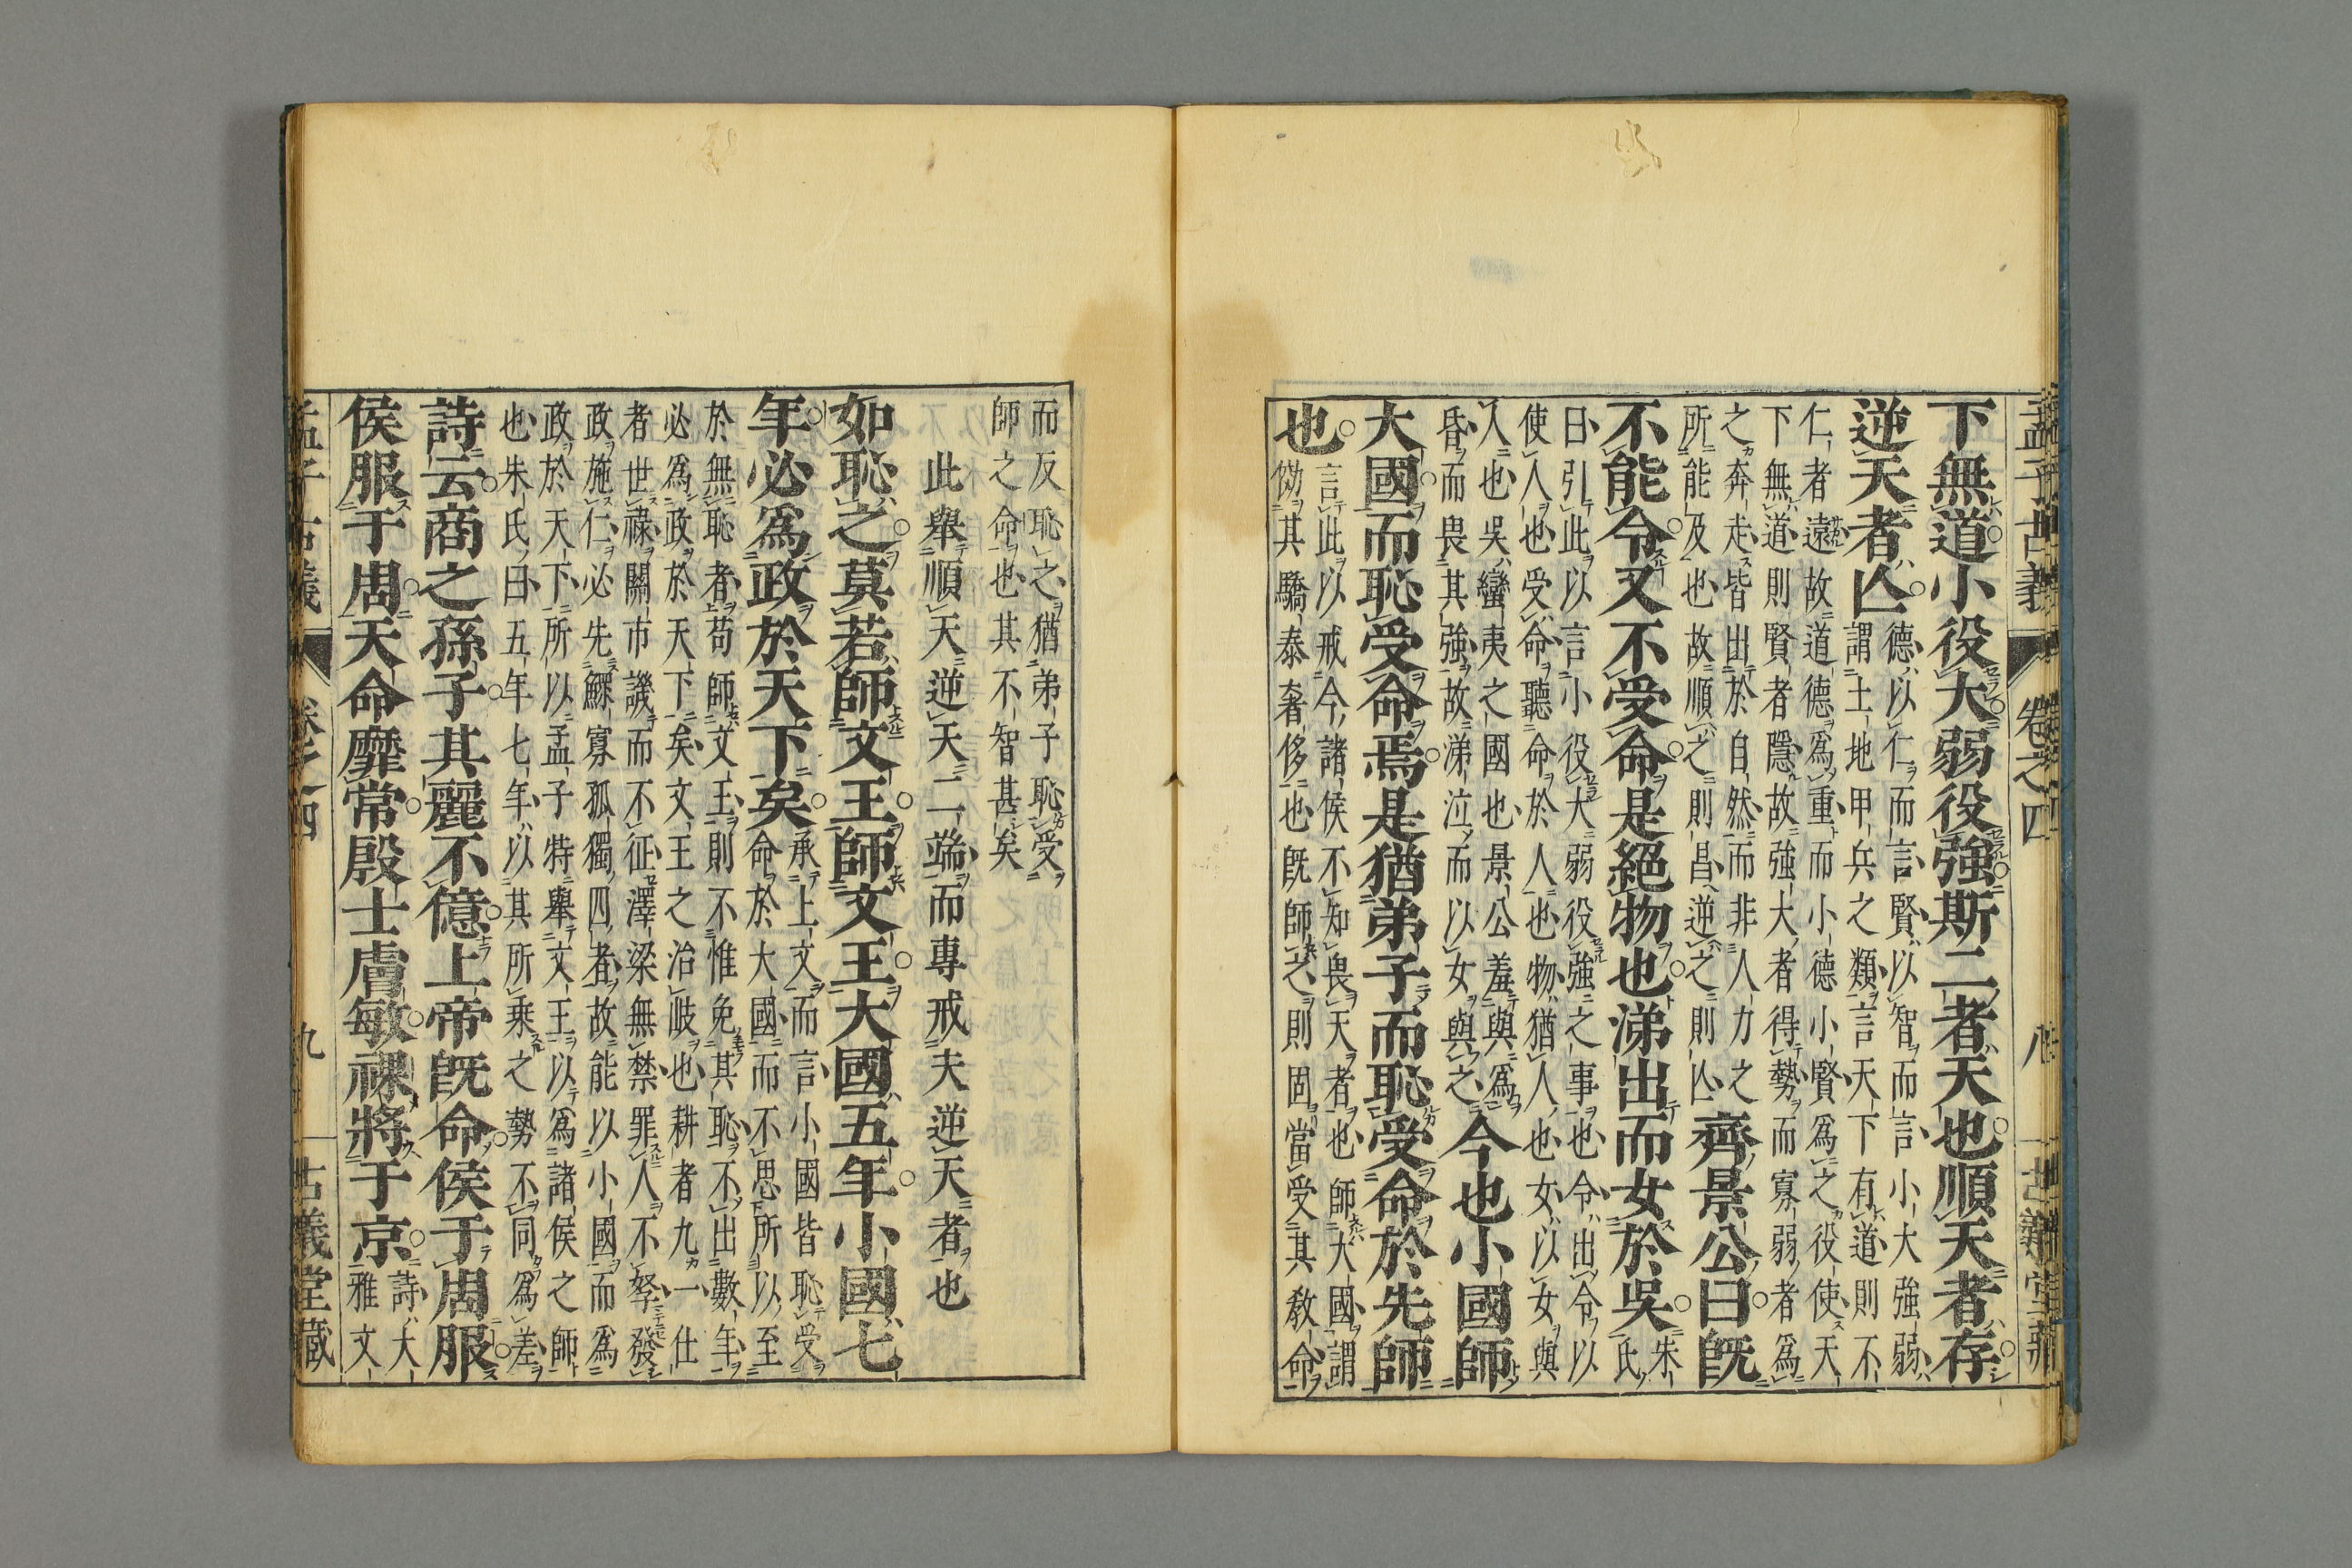 孟子古義 卷之四 八 古義堂藏
下無道小役大弱役強斯二者天也順天者存
逆天者亾
德以仁而言賢以智而言小大強弱
謂土地甲兵之類言天下有道則不
仁者遠故道德爲重而小德小賢爲之役使天
下無道則賢者隱故強大者得勢而寡弱者爲
之奔走皆出於自然而非人力之
所能及也故順之則昌逆之則亾
齊景公曰旣
不能令又不受命是絕物也涕出而女於吳
朱
氏
曰引此以言小役大弱役強之事也令出令以
使人也受命聽命於人也物猶人也女以女與
人也吳蠻夷之國也景公羞與爲
昏而畏其強故涕泣而以女與之
今也小國師
大國而恥受命焉是猶弟子而恥受命於先師
也
言此以戒今諸侯不知畏天者也師大國謂
傚其驕泰奢侈也旣師之則固當受其敎命
而反恥之猶弟子恥受
師之命也其不智甚矣
此舉順天逆天二端而專戒夫逆天者也
如恥之莫若師文王師文王大國五年小國七
年必爲政於天下矣
承上文而言小國皆恥受
命於大國而不思所以至
於無恥者苟師文王則不惟免其恥不出數年
必爲政於天下矣文王之治岐也耕者九一仕
者世祿關市譏而不征澤梁無禁罪人不孥發
政施仁必先鰥寡孤獨四者故能以小國而爲
政於天下所以孟子特舉文王以爲諸侯之師
也朱氏曰五年七年以其所乘之勢不同爲差
詩云商之孫子其麗不億上帝旣命侯于周服
侯服于周天命靡常殷士膚敏祼將于京
詩大
雅文
孟子古義 卷之四 九 古義堂藏